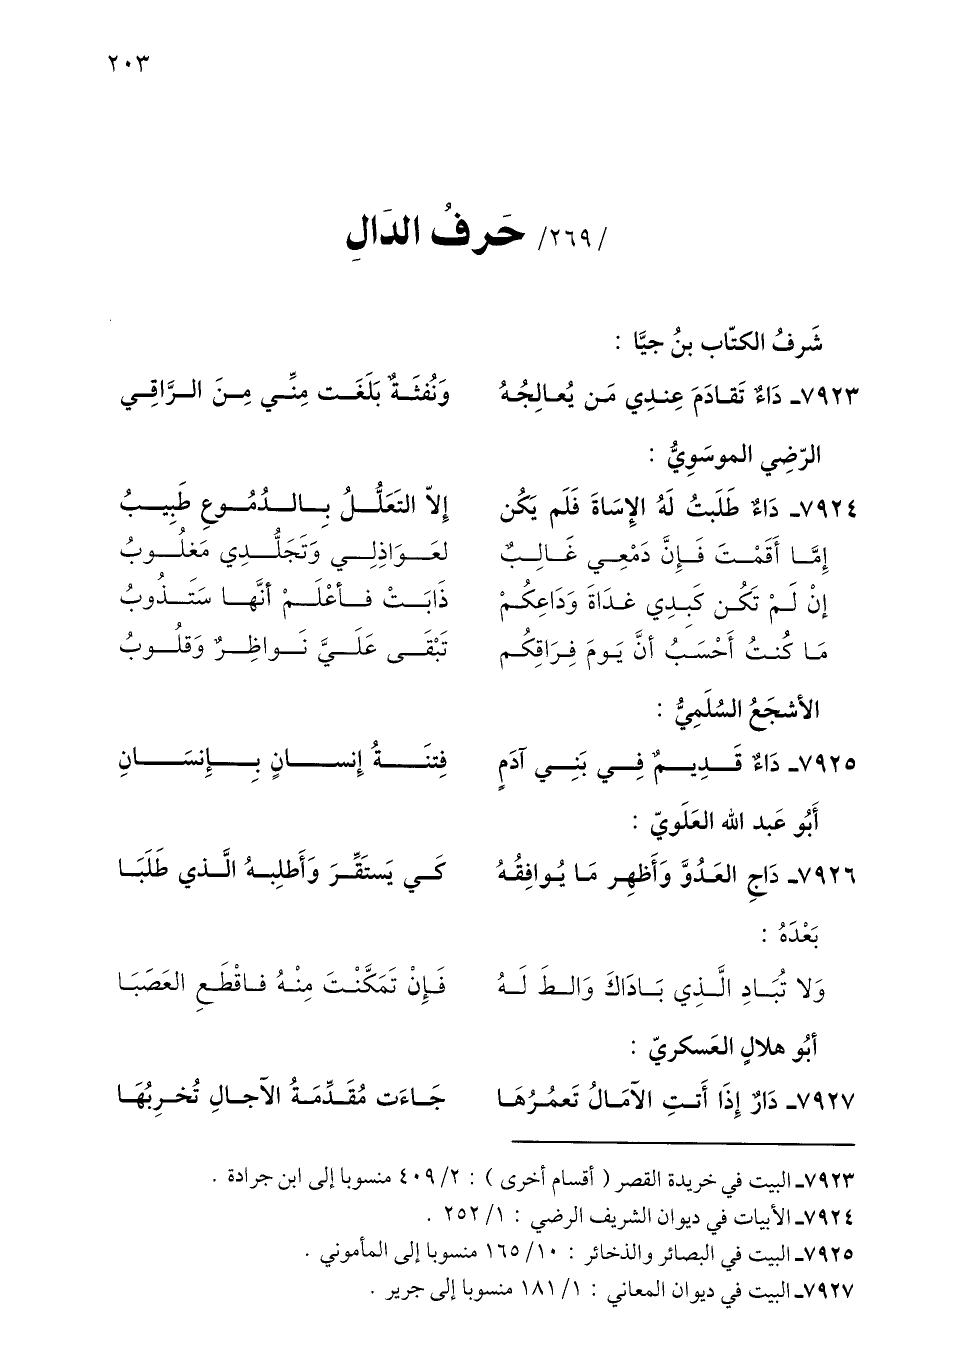 ٢٠٣
/٢٦٩/ حَرفُ الدَالِ
شَرفُ الكتّاب بنُ جيَّا :
٧٩٢٣ـ دَاءٌ تَقادَمَ عِندِي مَن يُعالِجُهُ وَنُفثَةٌ بَلَغَت مِنِّي مِنَ الرَّاقِي
الرّضِي الموسَوِيُّ :
٧٩٢٤ـ دَاءٌ طَلَبتُ لَهُ الإِسَاةَ فَلَم يَكُن إلاّ التَعَلُّلُ بِالدُمُوعِ طَبِيبُ
إمَّا أَقَمْتَ فَإِنَّ دَمْعِي غَالِبٌ لعَوَاذِلِي وَتَجَلُّدِي مَغلُوبُ
إنْ لَمْ تَكُن كَبِدِي غدَاةَ وَدَاعِكُمْ ذَابَتْ فَأعْلَمْ أنَّهَا سَتَذُوبُ
مَا كُنتُ أَحْسَبُ أنَّ يَومَ فِرَاقِكُم تَبْقَى عَلَيَّ نَواظِرٌ وَقلُوبُ
الأشجَعُ السُلَمِيُّ :
٧٩٢٥ـ دَاءٌ قَدِيمٌ فِي بَنِي آدَمٍ فِتنَةُ إنسانٍ بِإِنسَانِ
أَبُو عَبد الله العَلَويّ :
٧٩٢٦ـ دَاجِ العَدُوَّ وَأَظهِر مَا يُوافِقُهُ كَي يَستَقِرَّ وَأَطلِبهُ الَّذي طَلَبَا
بَعْدَهُ :
وَلا تُبَادِ الَّذِي بَادَاكَ وَالطَ لَهُ فَإِنْ تَمَكَّنْتَ مِنْهُ فاقْطَعِ العَصَبَا
أبُو هلالٍ العَسكريّ :
٧٩٢٧ـ دَارٌ إِذَا أَتتِ الآمَالُ تَعمُرُهَا جَاءَت مُقَدِّمَةُ الآجالِ تُخرِبُهَا
٧٩٢٣ـ البيت في خريدة القصر ( أقسام أخرى ) : ٤٠٩/٢ منسوبا إلى ابن جرادة .
٧٩٢٤ـ الأبيات في ديوان الشريف الرضي : ٢٥٢/١ .
٧٩٢٥ـ البيت في البصائر والذخائر : ١٦٥/١٠ منسوبا إلى المأموني .
٧٩٢٧ـ البيت في ديوان المعاني : ١٨١/١ منسوبا إلى جرير .